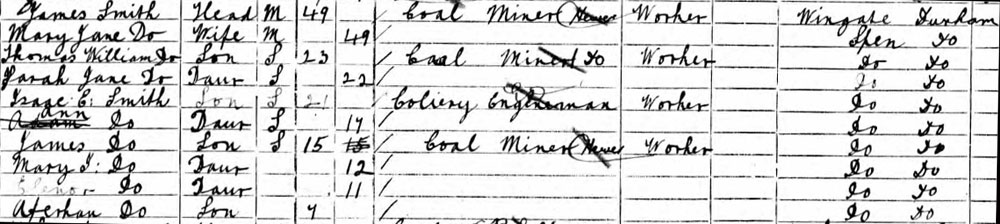 James Smith Head M 49 Coal Miner Hewer Worker Wingate Durham
Mary Jane Do Wife M 49 Spen Do
Thomas William Do Son S 23 Coal Miner Do Worker Do Do
Sarah Jane Do Daur S 22 Do Do
Isaac E: Smith Son S 21 Coliery Engineman Worker Do Do
Ann Do Daur S 17 Do Do
James Do Son S 15 15 Coal Miner Hewer Worker Do Do
Mary J: Do Daur 12 Do Do
Elenor Do Daur 11 Do Do
Do Son 7 Do Do